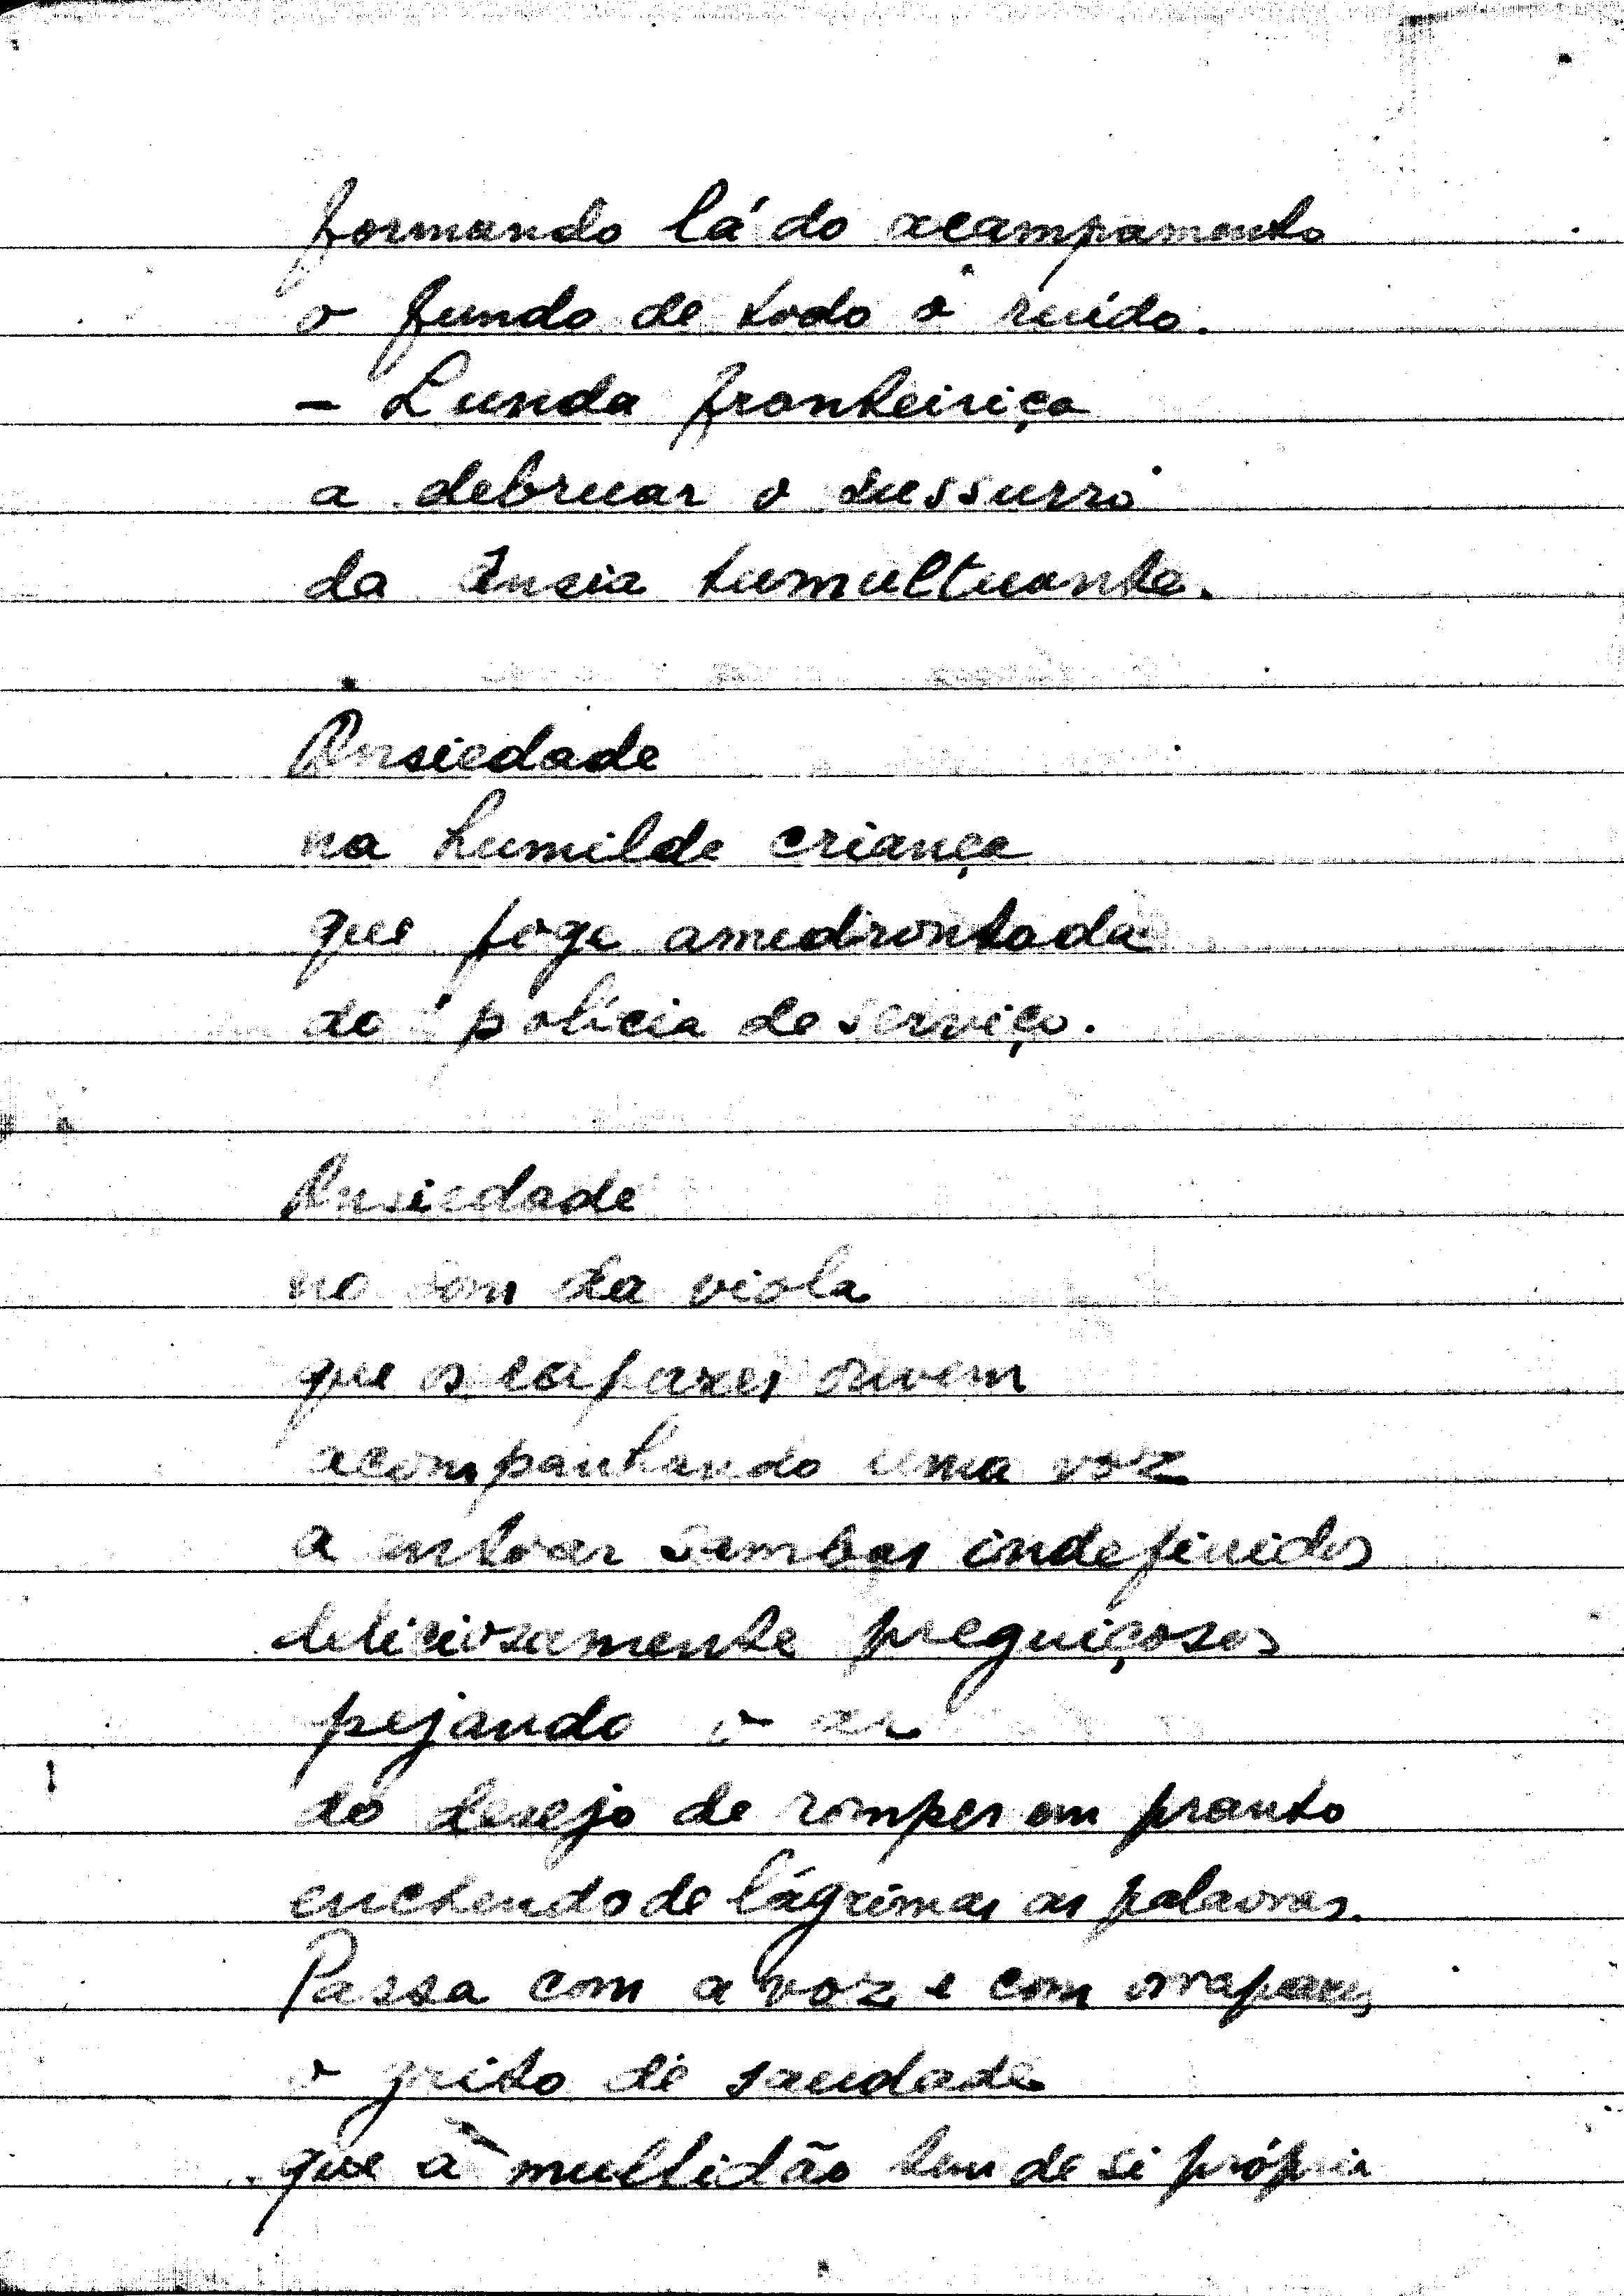 formando lá do acampamento
o fundo de todo o ruído.
– Lunda fronteiriça
a debruar o sussurro
da ânsia tumultuante.
Ansiedade
na humilde criança
que foge amedrontada
do polícia de serviço.
Ansiedade
no som da viola
que os rapazes ouvem
acompanhando uma voz
a entoar sambas indefinidos
deliciosamente preguiçosos
pejando o ar
do desejo de romper em pranto
enchendo de lágrimas as palavras.
Passa com a voz e com os rapazes
o grito de saudade
que a multidão tem de si própria